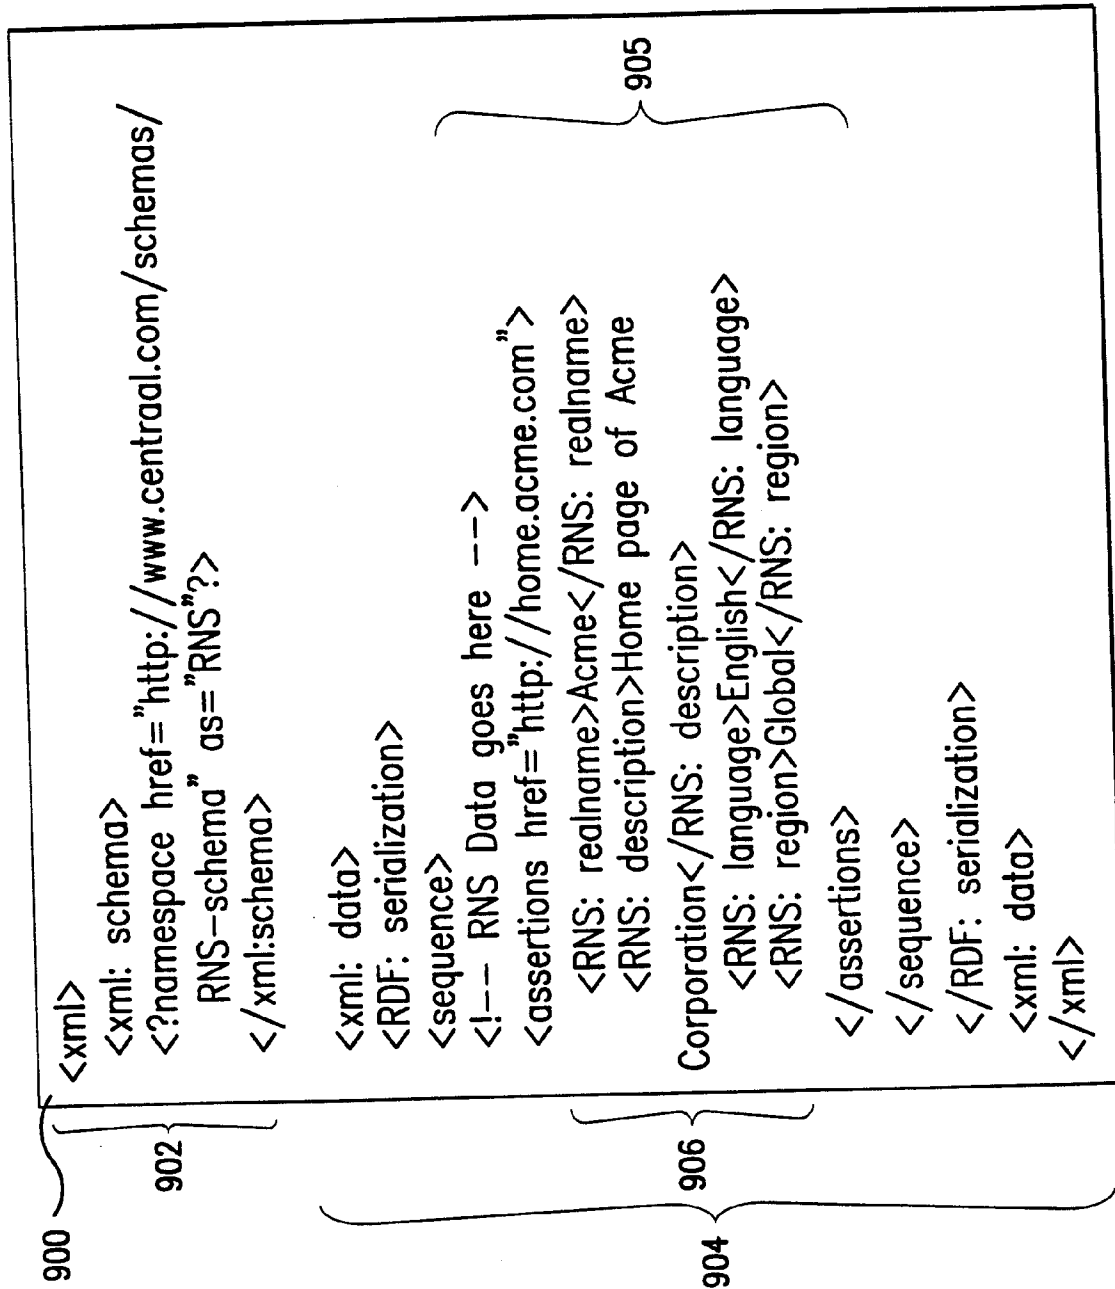 900
902
904
906
905
<xml>
<xml: schema>
<?namespace href="http://www.centraal.com/schemas/
RNS-schema" as="RNS"?>
</xml:schema>
<xml: data>
<RDF: serialization>
<sequence>
<!-- RNS Data goes here -->
<assertions href="http://home.acme.com">
<RNS: realname>Acme</RNS: realname>
<RNS: description>Home page of Acme
Corporation</RNS: description>
<RNS: language>English</RNS: language>
<RNS: region>Global</RNS: region>
</assertions>
</sequence>
</RDF: serialization>
<xml: data>
</xml>